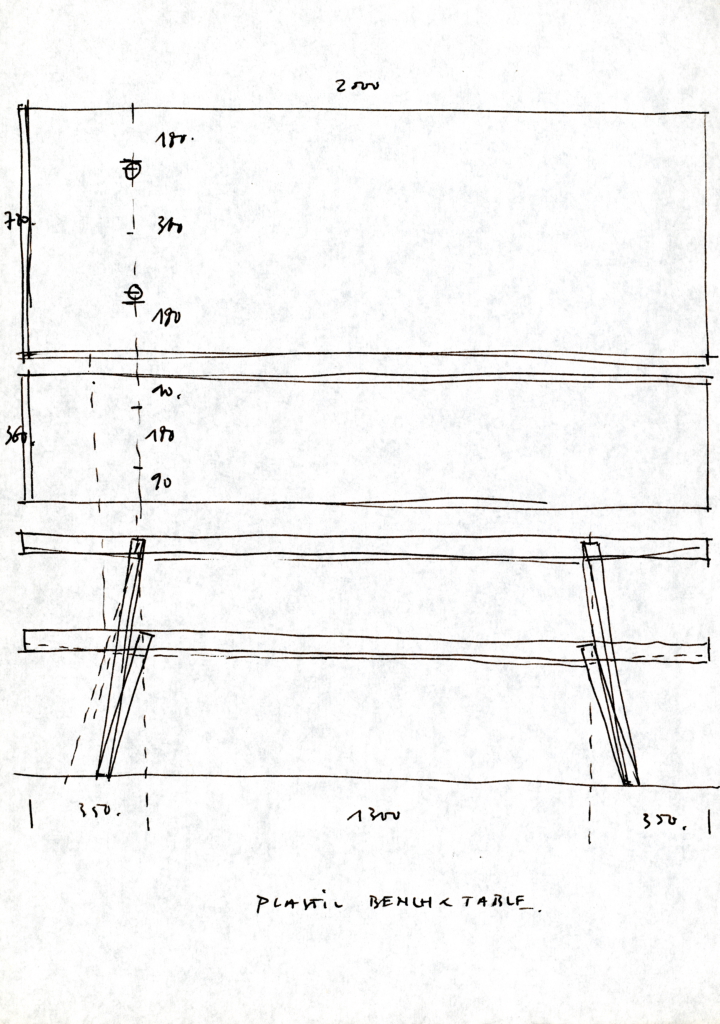 2000
180.
720.
360
180
90.
360.
180
90
350.
1300
350.
PLASTIC BENCH & TABLE.